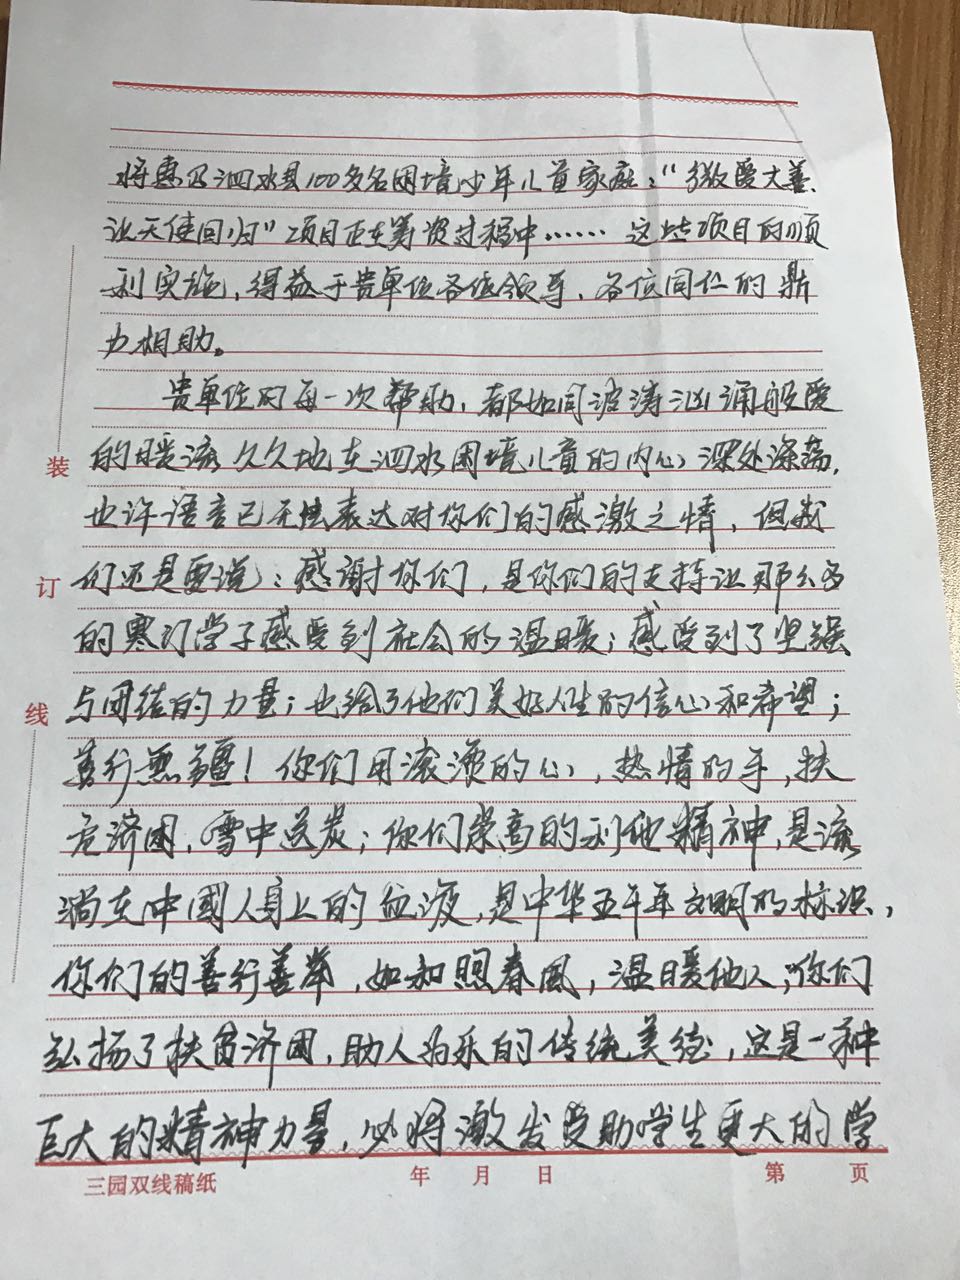 将惠及泗水县100多名困境少年儿童家庭；“微爱大善、
让天使回归”项目正在筹资过程中……这些项目的顺
利实施，得益于贵单位各位领导、各位同仁的鼎
力相助。
贵单位的每一次帮助，都如同波涛汹涌般爱
的暖流久久地在泗水困境儿童的内心深处涤荡，
也许语言已无法表达对你们的感激之情，但我
们还是要说：感谢你们，是你们的支持让那么多
的寒门学子感受到社会的温暖；感受到了坚强
与团结的力量；也给了他们美好人生的信心和希望；
善行無疆！你们用滚烫的心，热情的手，扶
危济困，雪中送炭；你们崇高的利他精神，是流
淌在中國人身上的血液，是中华五千年文明的标识，
你们的善行善举，如和煦春風，温暖他人；你们
弘扬了扶贫济困，助人为乐的传统美德，这是一种
巨大的精神力量，必将激发受助学生更大的学
装
订
线
三园双线稿纸 年 月 日 第 页